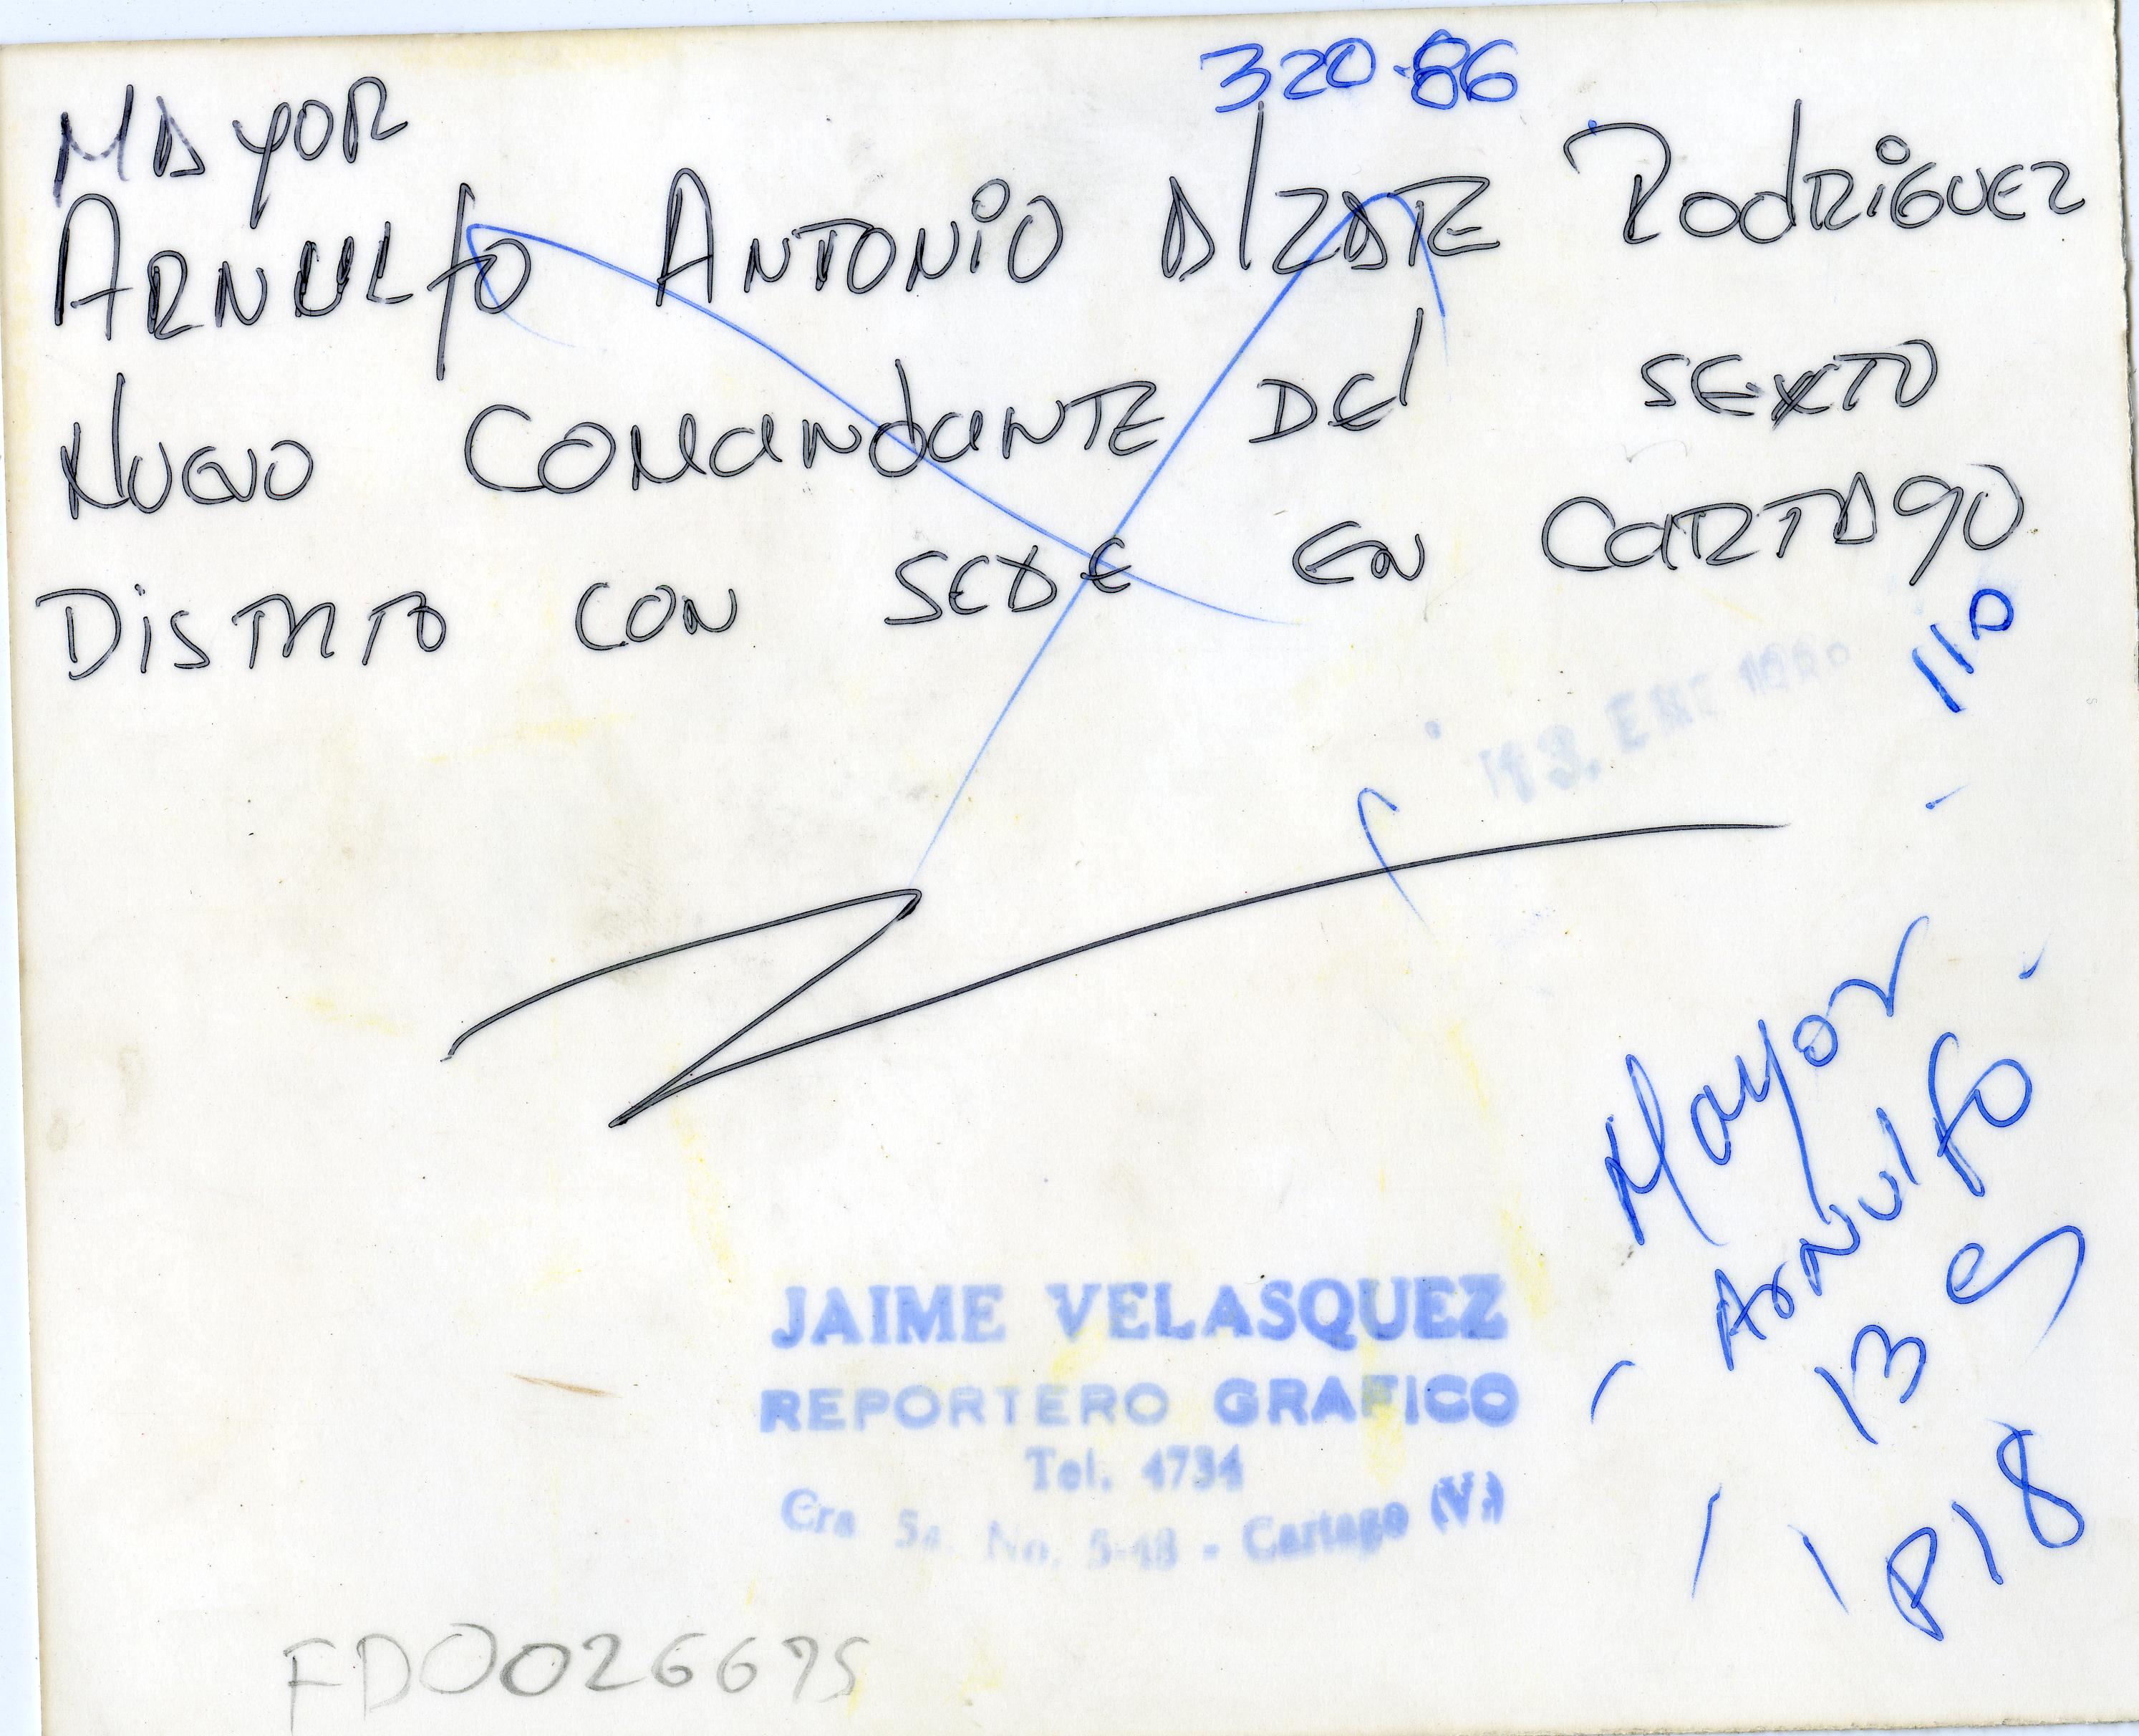 320-86
MAYOR
ARNULFO ANTONIO AlZATE RodRiGUEZ
NUEVO COMANdANTE DEl SEXTO
DiSTRITO CON SEDE EN CARTAgO
110
13. ENE
Mayor
Arnulfo
13
P18
JAIME VELASQUEZ
REPORTERO GRAFICO
Tel. 4734
Cra 5a. No. 5-48 - Cartago (V.)
FD0026695